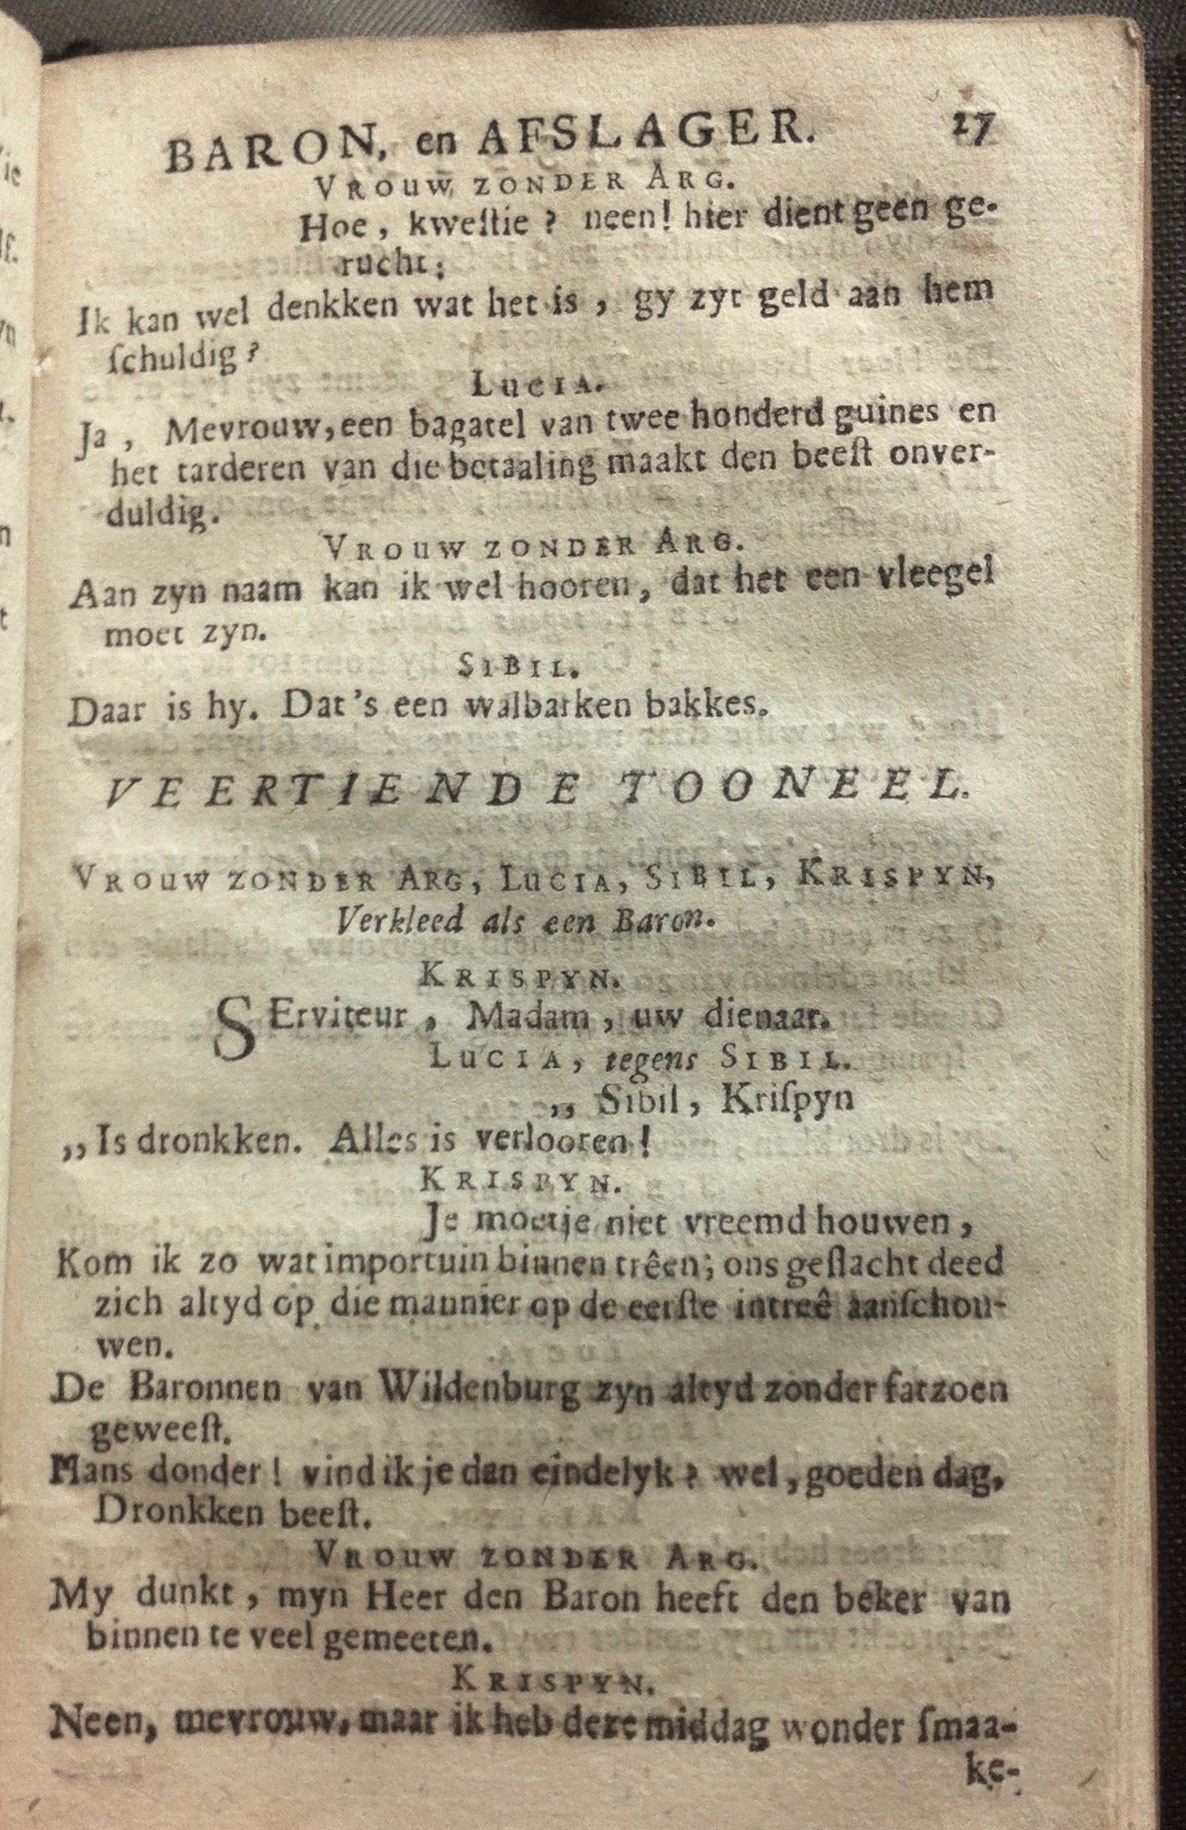 BARON, en AFSLAGER. 27
VROUW ZONDER ARG.
Hoe, kweſtie? neen! hier dient geen ge-
rucht;
Ik kan wel denkken wat het is, gy zyt geld aan hem
ſchuldig?
LUCIA.
Ja, Mevrouw, een bagatel van twee honderd guines en
het tarderen van die betaaling maakt den beeſt onver-
duldig.
VROUW ZONDER ARG.
Aan zyn naam kan ik wel hooren, dat het een vleegel
moet zyn.
SIBIL.
Daar is hy. Dat's een walbarken bakkes.
VEERTIENDE TOONEEL.
VROUW ZONDER ARG, LUCIA, SIBIL, KRISPYN,
Verkleed als een Baron.
KRISPYN.
SErviteur, Madam, uw dienaar.
LUCIA, tegens SIBIL.
„ Sibil, Kriſpyn
„Is dronkken. Alles is verlooren!
KRISPYN.
Je moetje niet vreemd houwen,
Kom ik zo wat importuin binnen trêen; ons geſlacht deed
zich altyd op die mannier op de eerſte intreê aanſchou-
wen.
De Baronnen van Wildenburg zyn altyd zonder fatzoen
geweeſt.
Mans donder! vind ik je dan eindelyk? wel, goeden dag,
Dronkken beeſt.
VROUW ZONDER ARG.
My dunkt, myn Heer den Baron heeft den beker van
binnen te veel gemeeten.
KRISPYN.
Neen, mevrouw, maar ik heb deze middag wonder ſmaa-
ke-